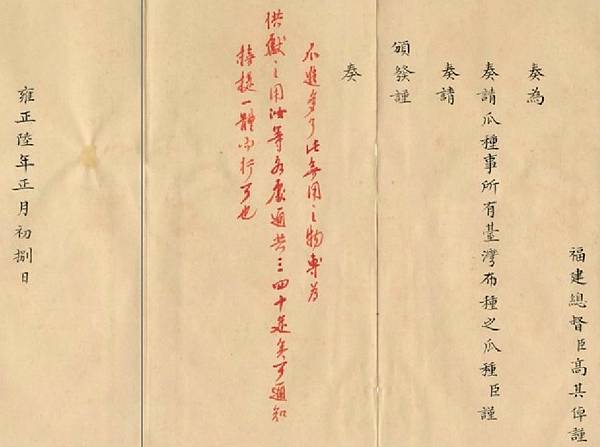 福建總督臣高其倬謹
奏為
奏請瓜種事所有臺灣布種之瓜種臣謹
奏請
頒發謹
奏
進多了此無用之物專為
供獻之用汝等各處通共三四十足矣可通知
提一體而行可也
雍正陸年正月初捌日